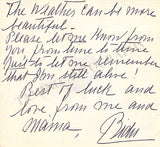 The Weather can be more
beautiful.
Please let me know from
you from time to time
just to let me remember
that I'm still alive!
Best of luck and
love from me and
Mama,